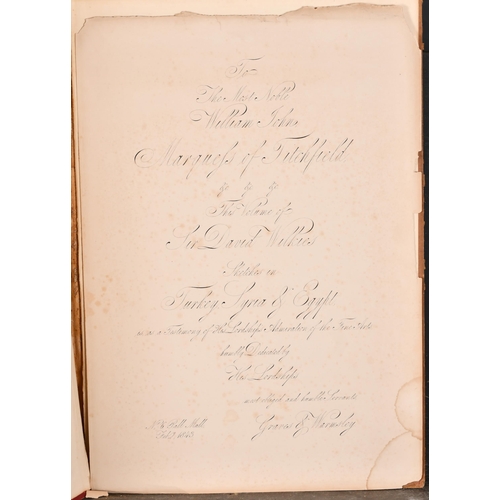 To
The Most Noble
William John,
Marquess of Titchfield
&c &c &c
This Volume of
Sir David Wilkie's
Sketches in
Turkey, Syria & Egypt,
as a Testimony of His Lordship's Admiration of the Fine Arts
humbly Dedicated by
His Lordships
most obliged and humble Servants
Graves & Warmsley
Pall Mall
1843